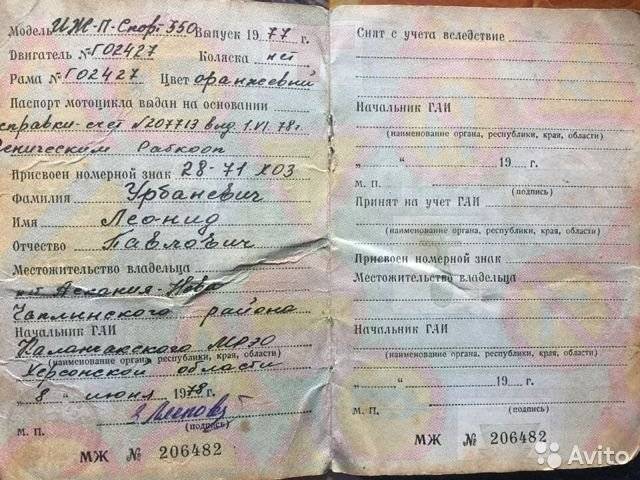 Модель ИЖ-П-Спорт 350 Выпуск 1977 г.
Двигатель № Г02427 Коляска нет
Рама № Г02427 Цвет оранжевый
Паспорт мотоцикла выдан на основании
справки-счет №207713 выд. 1.VI.78г.
Геническим Рабкооп
Присвоен номерной знак 28-71 ХОЗ
Фамилия Урбаневич
Имя Леонид
Отчество Павлович
Местожительство владельца
Аскания-Нова
Чаплинского района
Начальник ГАИ
Каланчакского МРЭО
(наименование органа, республики, края, области)
Херсонской области
"8" июня 1978 г.
(подпись)
М. П.
МЖ № 206482
Снят с учета вследствие
Начальник ГАИ
(наименование органа, республики, края, области)
" " 19 г.
М. П. (подпись)
Принят на учет ГАИ
(наименование органа, республики, края, области)
Присвоен номерной знак
Местожительство владельца
Начальник ГАИ
(наименование органа, республики, края, области)
" " 19 г.
М. П. (подпись)
МЖ № 206482
Avito